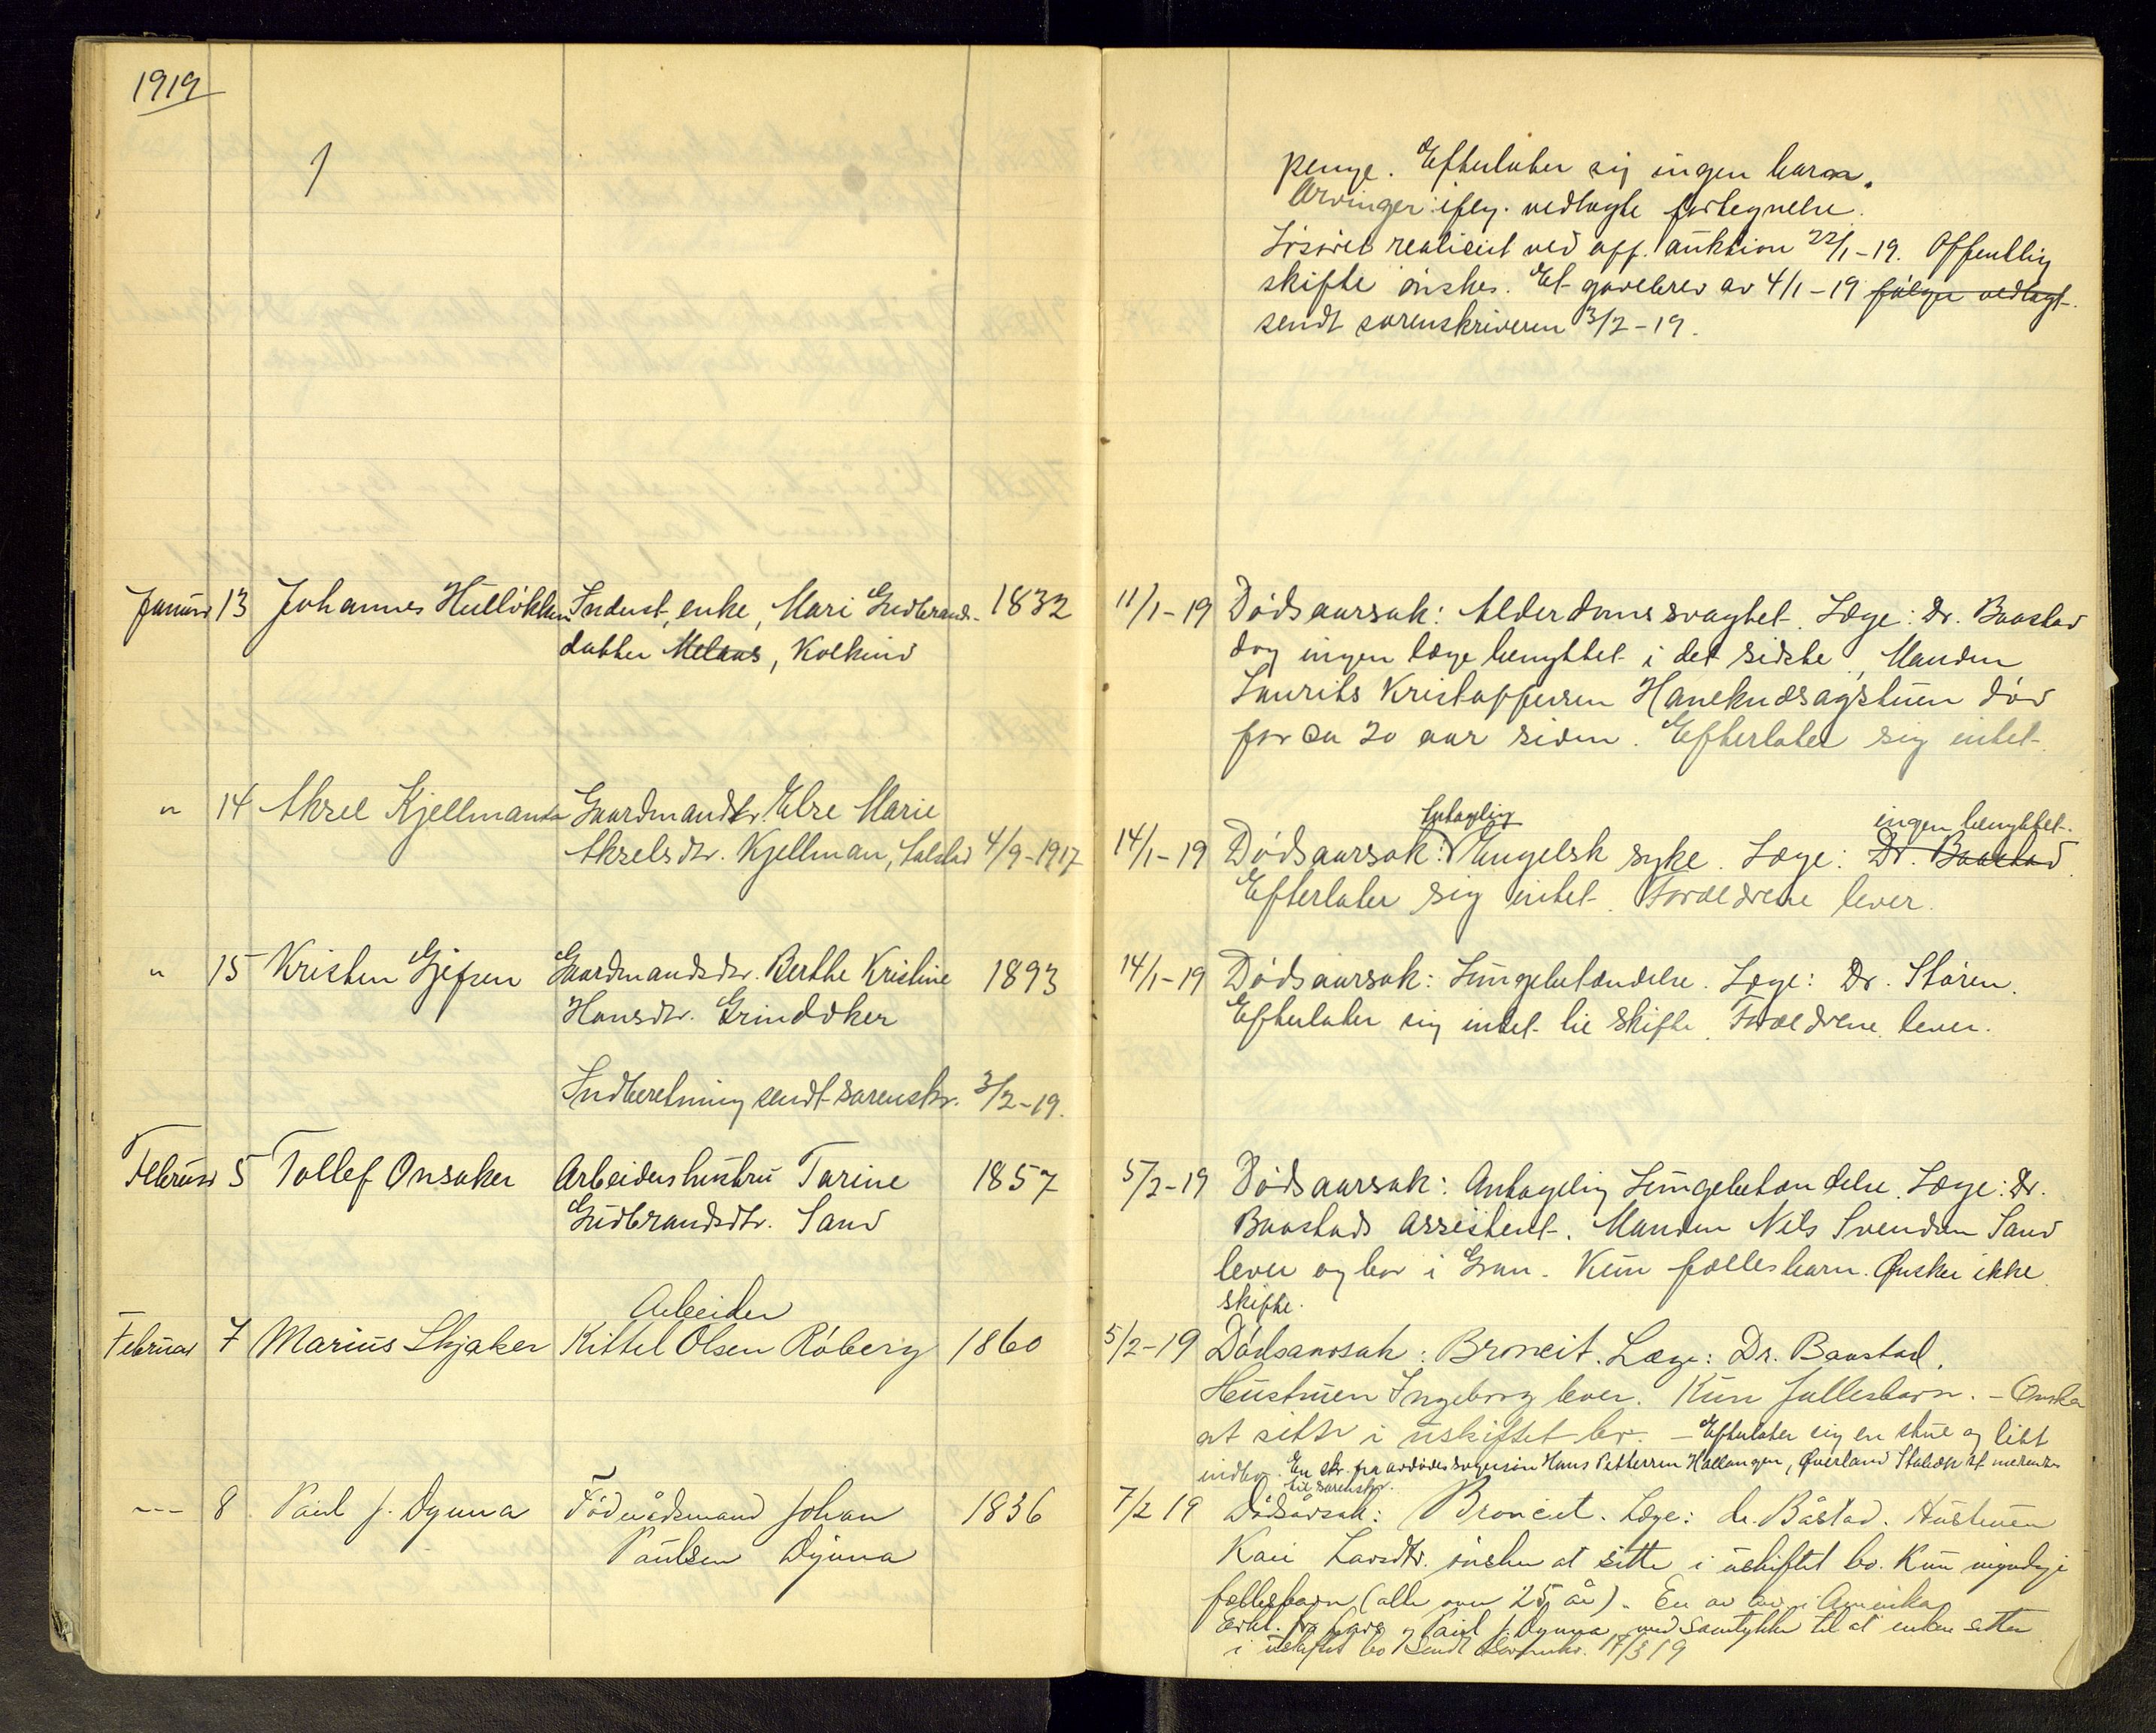 1919
penge. Efterlater sig ingen barn.
Arvinger ifølg. vedlagte fortegnelse.
Løsøret realisert ved off. auktion 22/1-19. Offentlig
skifte ønskes. Et gavebrev av 4/1-19 følger vedlagt.
sendt sorenskriveren 3/2-19.
Januar 13 Johannes Hulløkken Inderst, enke, Mari Gudbrands- 1832 11/1-19 Dødsaarsak: Alderdomssvaghet. Læge: Dr. Baastad
datter Melaas, Kolkind dog ingen læge benyttet i det sidste. Manden
Laurits Kristoffersen Haneknæsagstuen død
for ca 20 aar siden. Efterlater sig intet.
" 14 Aksel Kjellmann Gaardmandsdtr. Else Marie Antagelig ingen benyttet.
Akselsdtr. Kjellman, Sølstad 4/9-1917 14/1-19 Dødsaarsak: Engelsk syke. Læge: Dr. Baastad
Efterlater sig intet. Forældrene lever.
" 15 Kristen Gjefsen Gaardmandsdtr. Berthe Kristine 1893 14/1-19 Dødsaarsak: Lungebetændelse. Læge: Dr. Støren.
Hansdtr. Grindaker Efterlater sig intet til skifte. Forældrene lever.
Indberetning sendt sorenskr. 3/2-19.
Februar 5 Tollef Onsaker Arbeiderhustru Tarine 1857 5/2-19 Dødsaarsak: Antagelig Lungebetændelse. Læge: Dr.
Gudbrandsdtr. Sand Baastads assistent. Manden Nils Svendsen Sand
lever og bor i Gran. Kun fællesbarn. Ønsker ikke
skifte.
Arbeider
Februar 7 Marius Skjaker Kittel Olsen Røberg 1860 5/2-19 Dødsaarsak: Broncit. Læge: Dr. Baastad.
Hustruen Ingeborg lever. Kun fællesbarn. - Ønsker
at sitte i uskiftet bo. - Efterlater sig en stue og litt
indbo. En skr. fra avdødes svigersøn Hans Pettersen Hallangen, Øverland
til sorenskr.
--- 8 Paul J. Dynna Födraadsmand Johan 1836 7/2 19 Dødsårsak: Broncit. Læge: dr. Båstad. Hustruen
Paulsen Dynna Kari Larsdtr. ønsker at sitte i uskiftet bo. Kun myndige
fællesbarn (alle over 25 år). En av dem i Amerika
Erkl. fra Lars og Paul J. Dynna med samtykke til at enken sitter
i uskiftet bo sendt sorenskr. 17/3 19